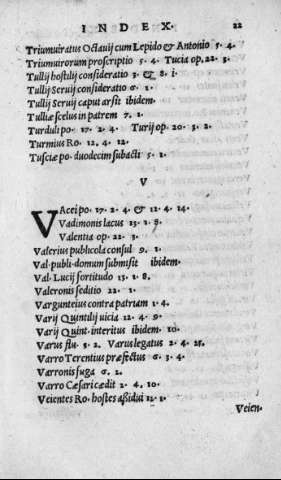 INDEX. 22
Triumuiratus Octauij cum Lepido & Antonio 5. 4.
Triumuirorum proscriptio 5. 4. Tucia op. 22. 3.
Tullij hostilij consideratio 3. & 8. i.
Tullij Seruij consideratio σ. 1.
Tullij Seruij caput arsit ibidem.
Tulliæ scelus in patrem 7. 1.
Turduli po. 17. 2. 4. Turij op. 20. 3. 2.
Turmius Ro. 12. 4. 12.
Tusciæ po. duodecim subacti 5. 1.
V
VAcei po. 17. 2. 4. & 12. 4. 14.
Vadimonis lacus 13. 1. 8.
Valentia op. 22. 3.
Valerius publicola consul 9. 1.
Val. publ. domum submisit ibidem.
Val. Lucij fortitudo 13. 1. 8.
Valeronis seditio 22. 1.
Vargunteius contra patriam 1. 4.
Varij Quintilij uicia 12. 4. 9.
Varij Quint. interitus ibidem. 10.
Varus flu. 3. 2. Varus legatus 2. 4. 25.
Varro Terentius præfectus σ. 3. 4.
Varronis fuga σ. 2.
Varro Cæsari cædit 2. 4. 10.
Veientes Ro. hostes aßidui 12. 1.
Veien-